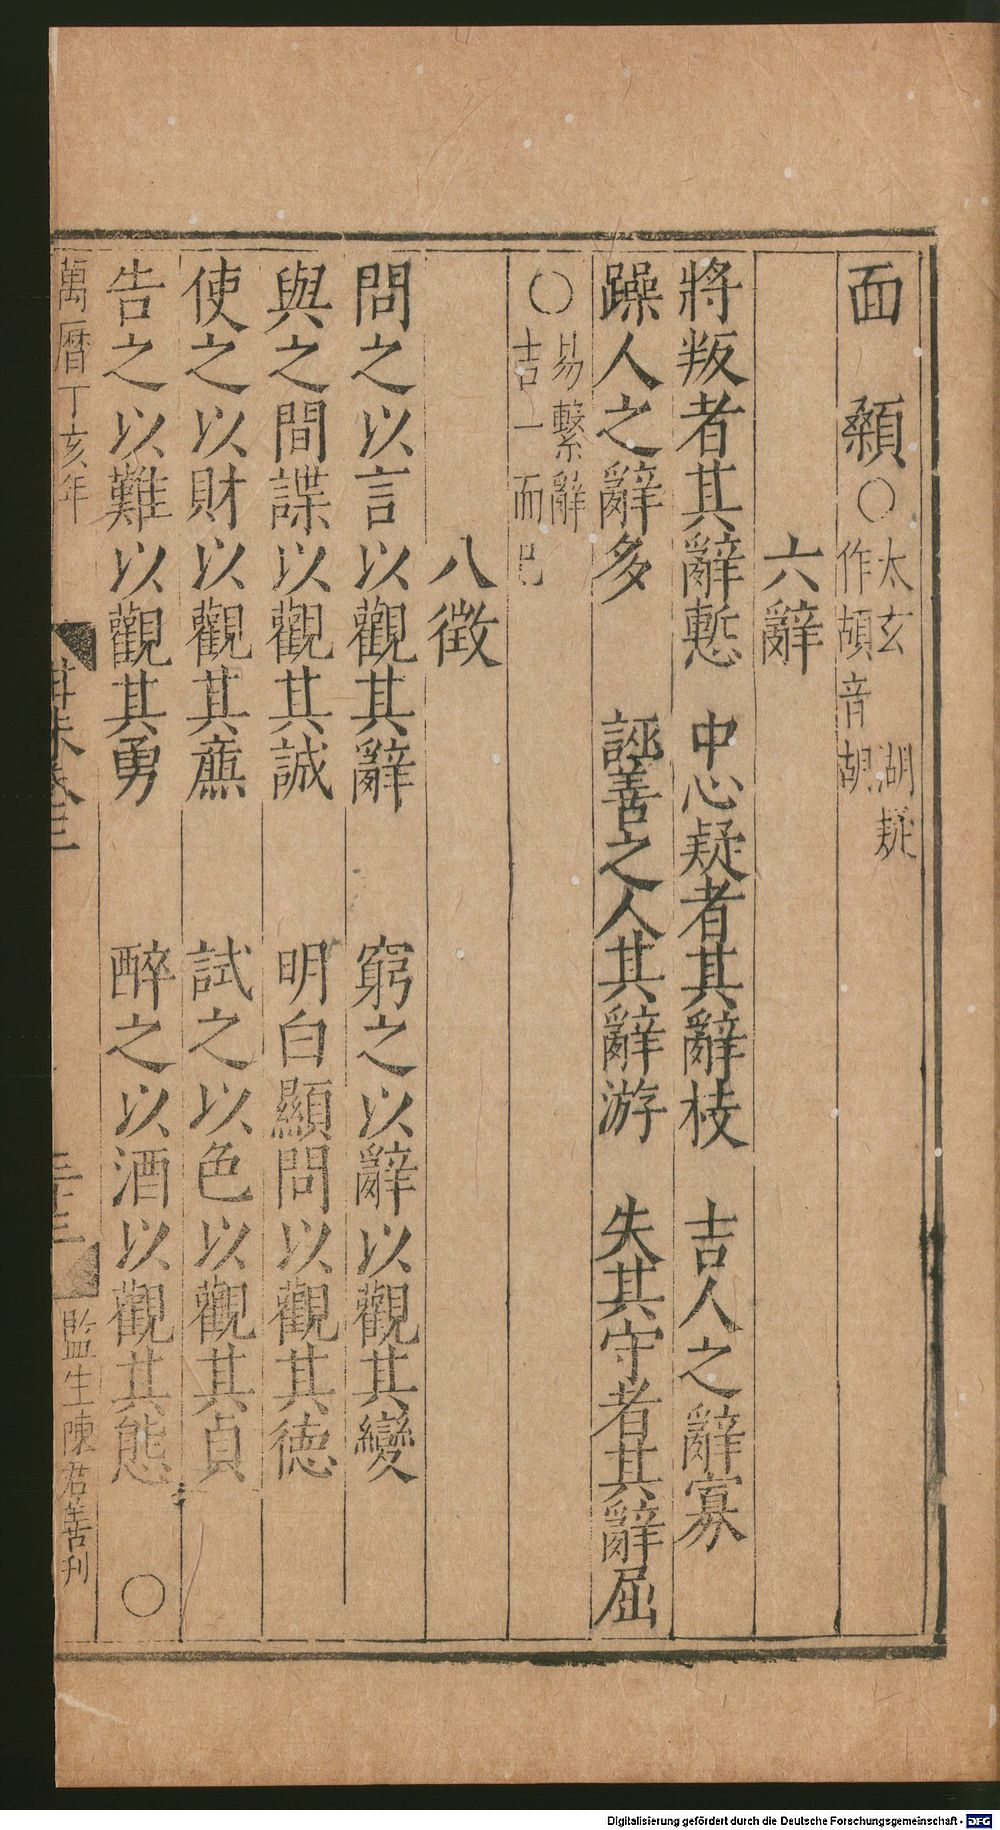 面 顙○太玄 湖疑
作頏音胡
六辭
將叛者其辭慙 中心疑者其辭枝 吉人之辭寡
躁人之辭多 誣善之人其辭游 失其守者其辭屈
○易繫辭
吉一而已
八徵
問之以言以觀其辭 窮之以辭以觀其變
與之間諜以觀其誠 明白顯問以觀其德
使之以財以觀其廉 試之以色以觀其貞
告之以難以觀其勇 醉之以酒以觀其態 ○
萬曆丁亥年 卷三 三十三 監生陳君善刊
Digitalisierung gefördert durch die Deutsche Forschungsgemeinschaft - DFG